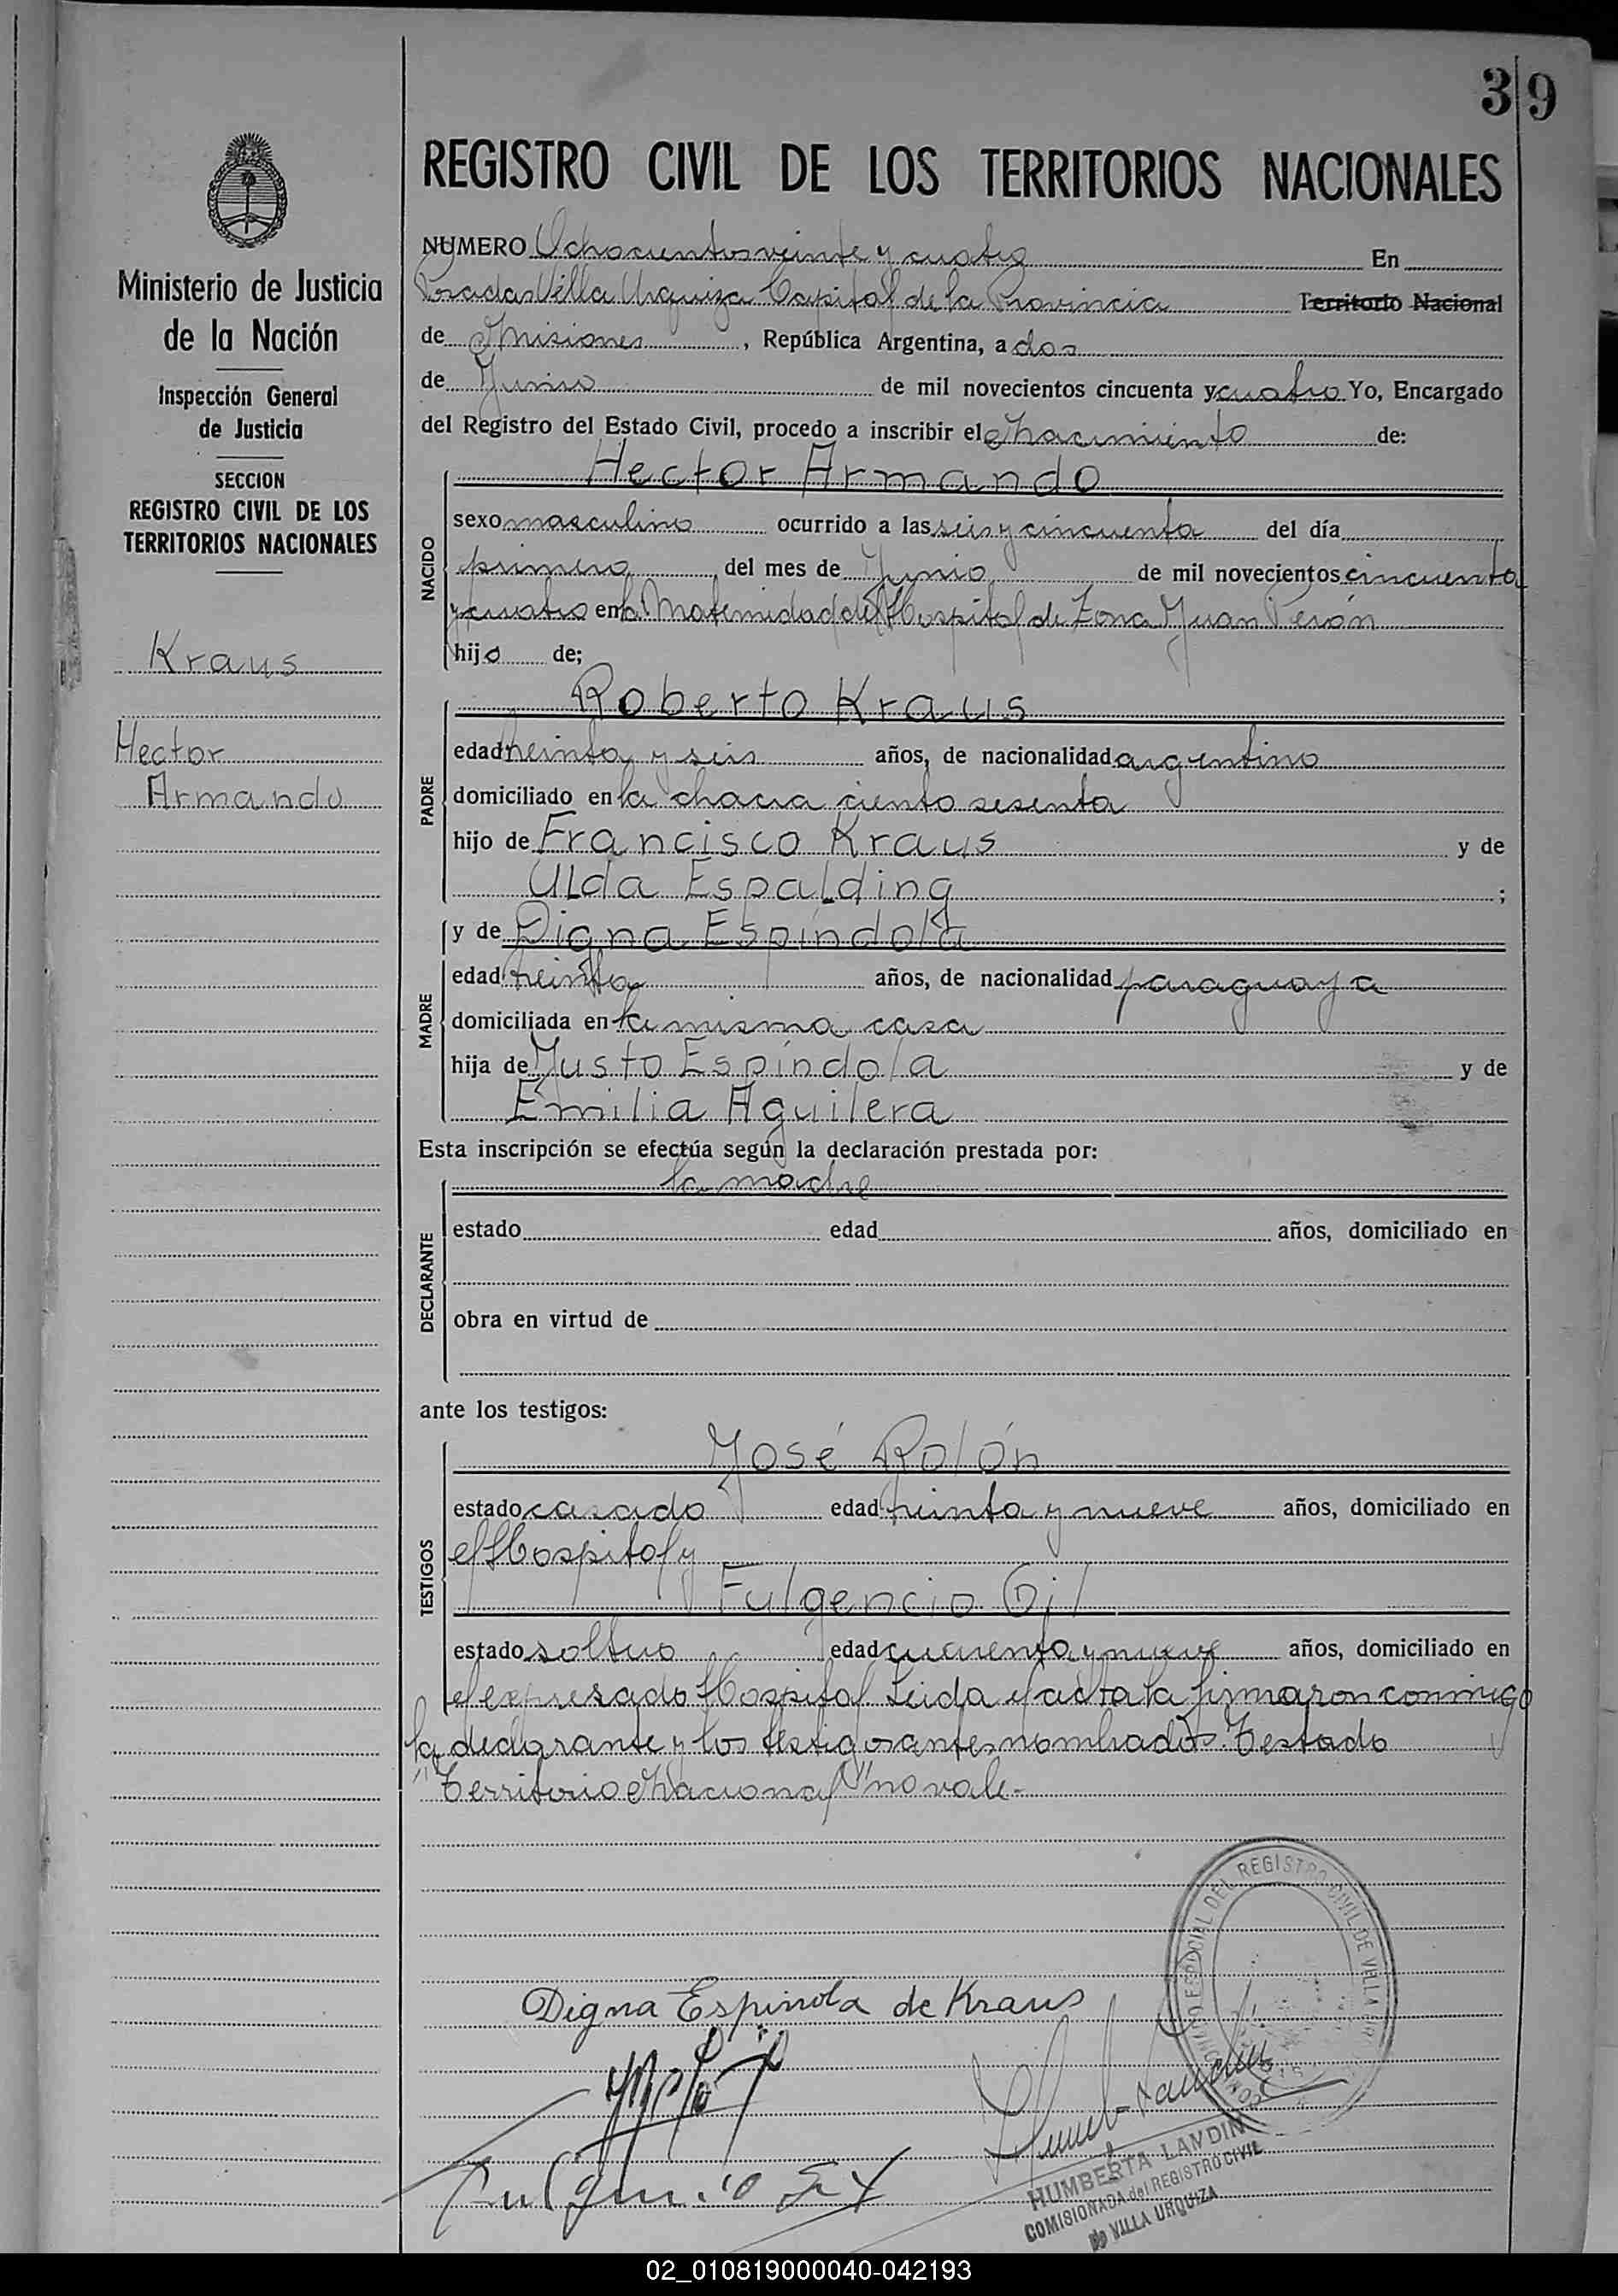 39
REGISTRO CIVIL DE LOS TERRITORIOS NACIONALES
Ministerio de Justicia
de la Nación
Inspección General
de Justicia
SECCION
REGISTRO CIVIL DE LOS
TERRITORIOS NACIONALES
Kraus
Hector
Armando
NUMERO Ochocientos veinte y cuatro En
Posadas Villa Urquiza Capital de la Provincia Territorio Nacional
de Misiones, República Argentina, a dos
de Junio de mil novecientos cincuenta y cuatro Yo, Encargado
del Registro del Estado Civil, procedo a inscribir el Nacimiento de:
NACIDO
Hector Armando
sexo masculino ocurrido a las seis y cincuenta del día
primero del mes de Junio de mil novecientos cincuenta
y cuatro en la Maternidad del Hospital de Zona Juan Perón
hijo de;
PADRE
Roberto Kraus
edad treinta y seis años, de nacionalidad argentino
domiciliado en la chacra ciento sesenta
hijo de Francisco Kraus y de
Ulda Espalding ;
y de Digna Espíndola
MADRE
edad treinta años, de nacionalidad paraguaya
domiciliada en la misma casa
hija de Justo Espíndola y de
Emilia Aguilera
Esta inscripción se efectúa según la declaración prestada por:
DECLARANTE
la madre
estado edad años, domiciliado en
obra en virtud de
ante los testigos:
TESTIGOS
José Rolón
estado casado edad treinta y nueve años, domiciliado en
el Hospital y
Fulgencio Gil
estado soltero edad cuarenta y nueve años, domiciliado en
el expresado Hospital Leida el acta la firmaron conmigo
la declarante y los testigos antes nombrados. Testado
"Territorio Nacional" no vale.-
Digna Espinola de Kraus
REGISTRO CIVIL DE VILLA
HUMBERTA LANDIN
COMISIONADA del REGISTRO CIVIL
de VILLA URQUIZA
02_010819000040-042193